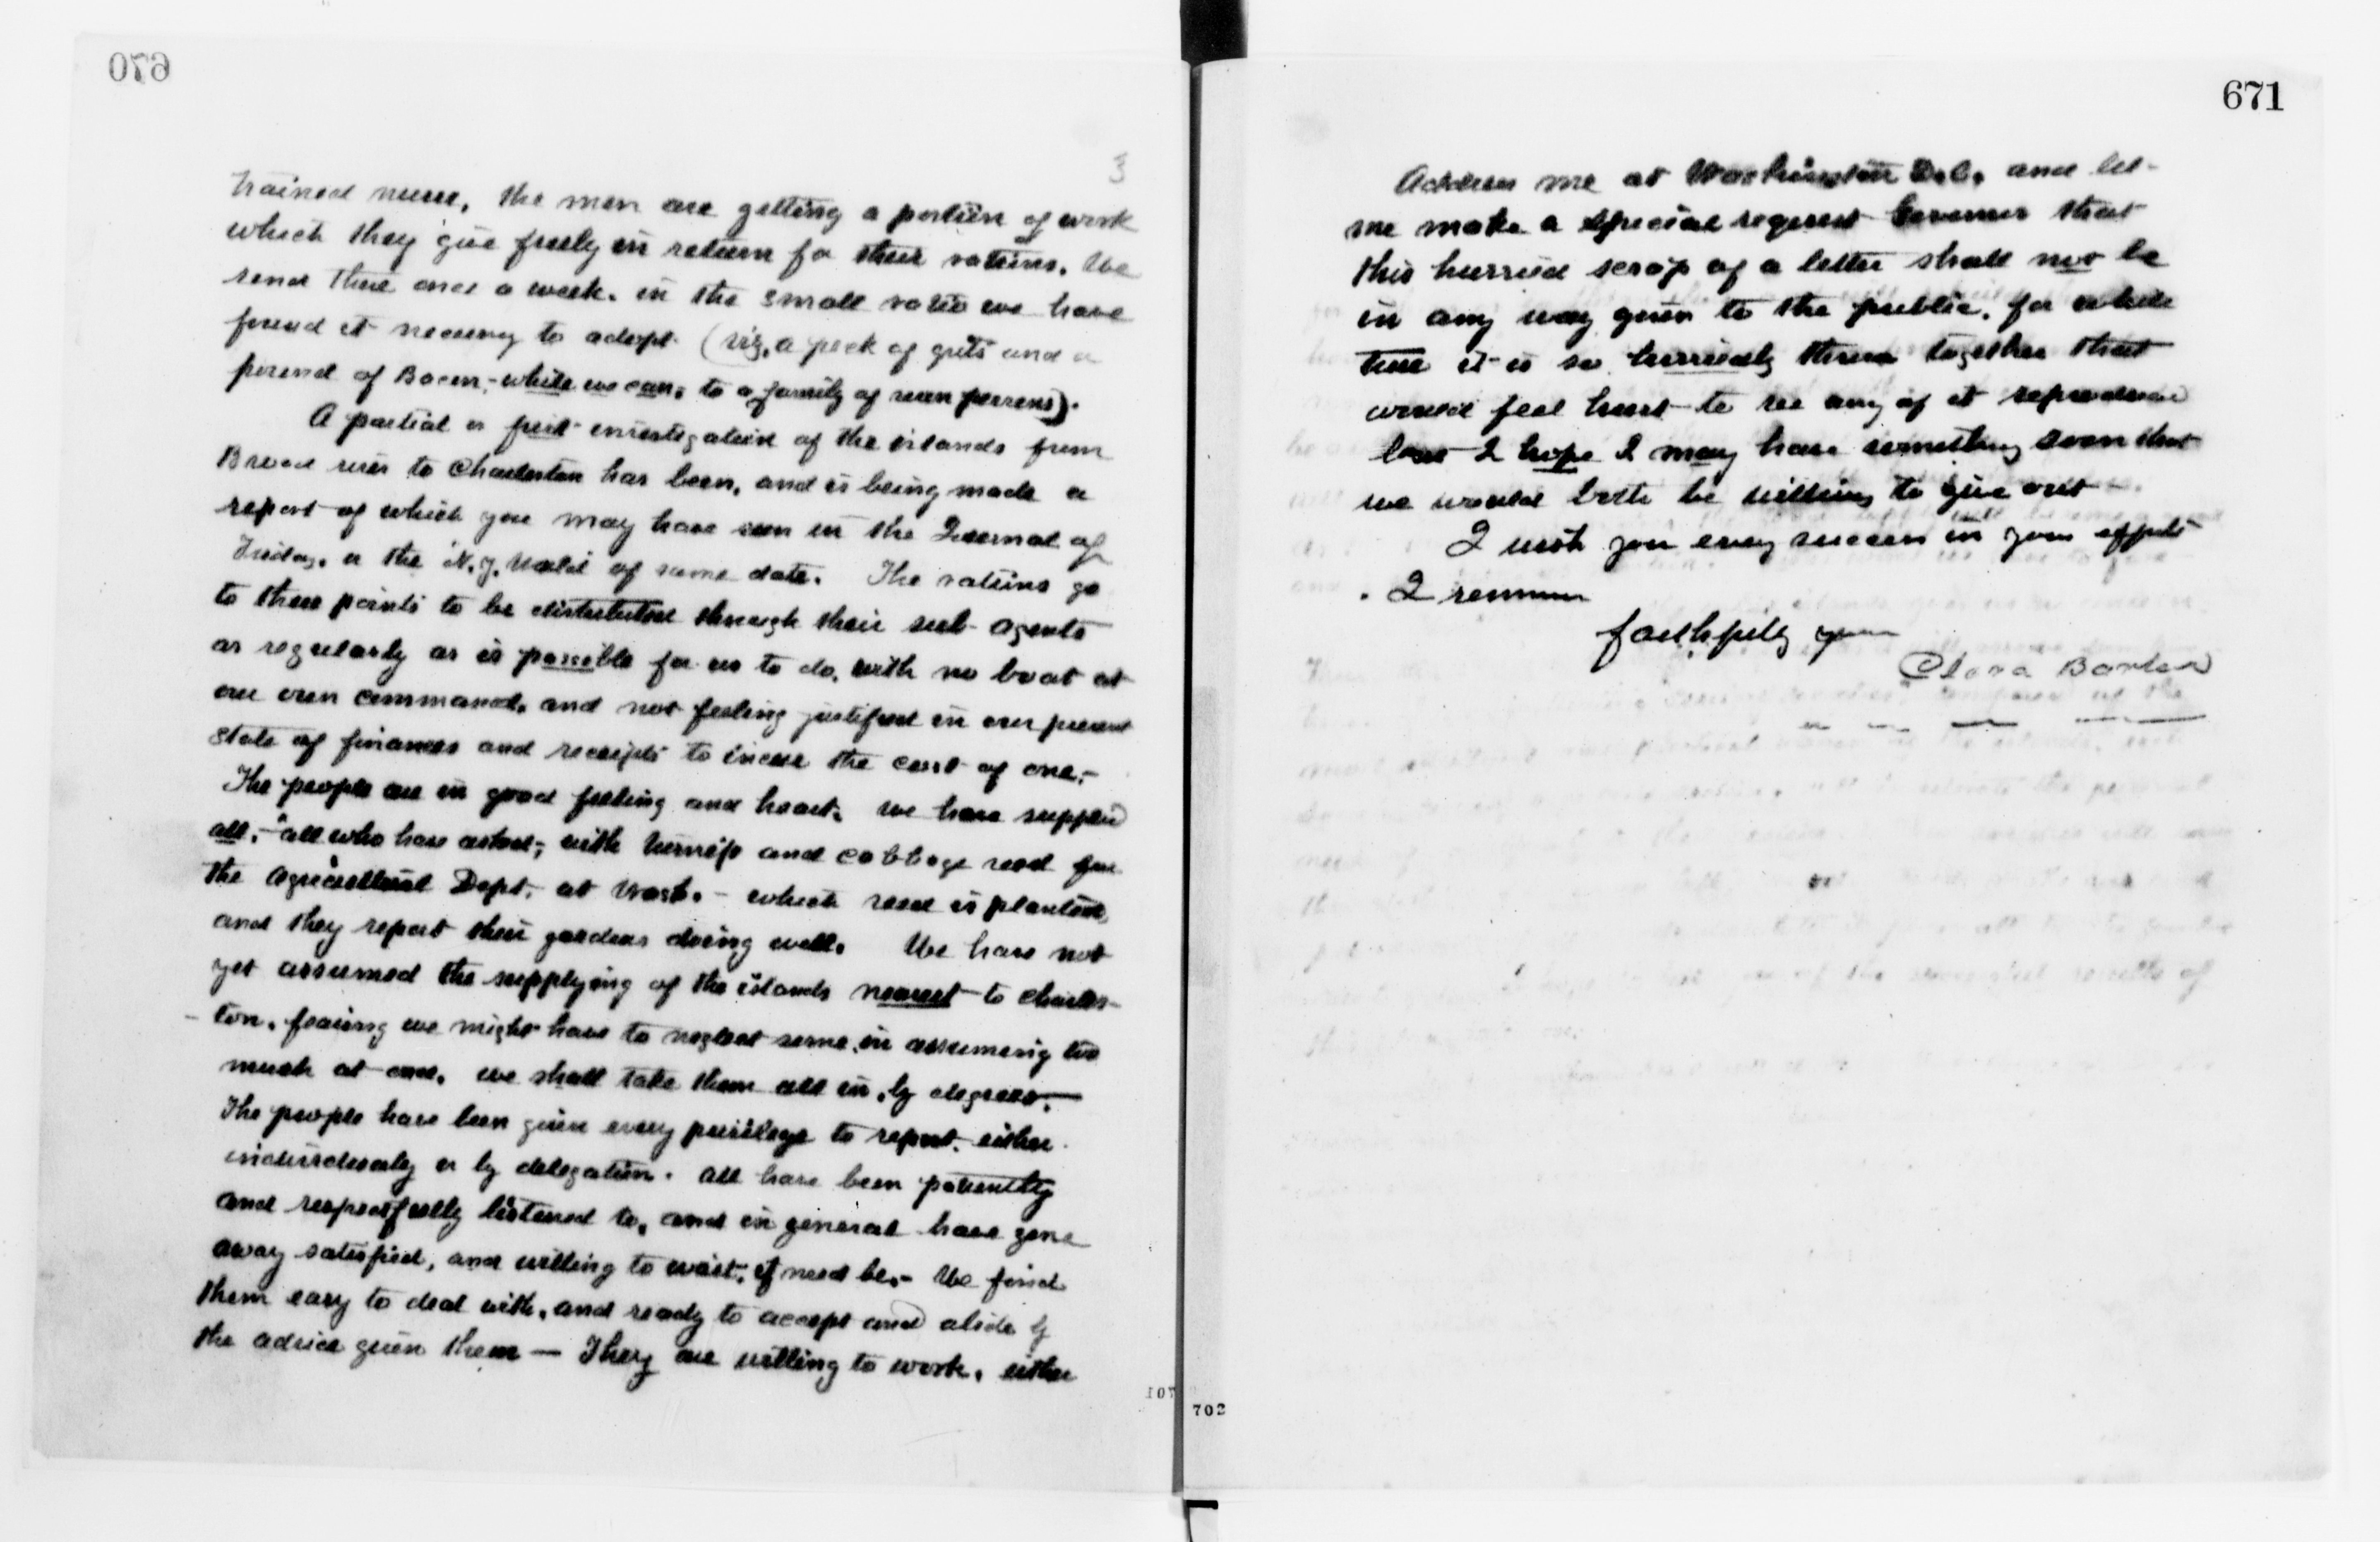 670
3
trained nurse, the men are getting a portion of work
which they give freely in return for their rations. We
send these once a week. in the small ratio we have
found it necessary to adopt. (viz, a peck of grits and a
pound of Bacon,- while we can, to a family of seven persons).
A partial or first investigation of the islands from
Broad river to Charleston has been, and is being made a
report of which you may have seen in the Journal of
Friday, or the N.Y. World of same date. The rations go
to these points to be distributed through their sub-agents
as regularly as is possible for us to do, with no boat at
our own command, and not feeling justified in our present
state of finances and receipts to incur the cost of one,-
The people are in good feeling and heart. we have supplied
all,- "all who have asked," with turnip and cabbage seed from
the Agricultural Dept. at Wash. - which seed is planted,
and they report their gardens doing well. We have not
yet assumed the supplying of the islands nearest to Charles-
-ton, fearing we might have to neglect some, in assuming too
much at once. we shall take them all in, by degrees.-
The people have been given every privilege to report. either
individually or by delegation. All have been patiently
and respectfully listened to, and in general have gone
away satisfied, and willing to wait, if need be.- We find
them easy to deal with, and ready to accept and abide by
the advice given them — They are willing to work, either
107
702
671
Address me at Washington D.C. and let
me make a special request Governor that
this hurried scrap of a letter shall not be
in any way given to the public, for while
true it is so hurriedly thrown together that
would feel hurt to see any of it reproduced
but I hope I may have something soon that
we would both be willing to give out -.
I wish you every success in your efforts
. I remain
faithfully yours
Clara Barton